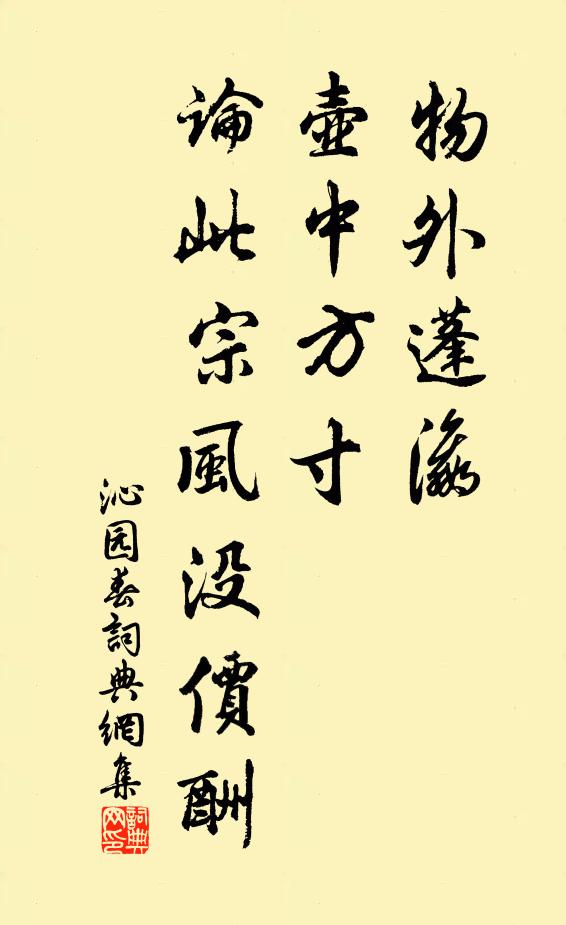 物外蓬瀛
壺中方寸
論此宗風没價酬
沁园春詞典網集
詞典网印